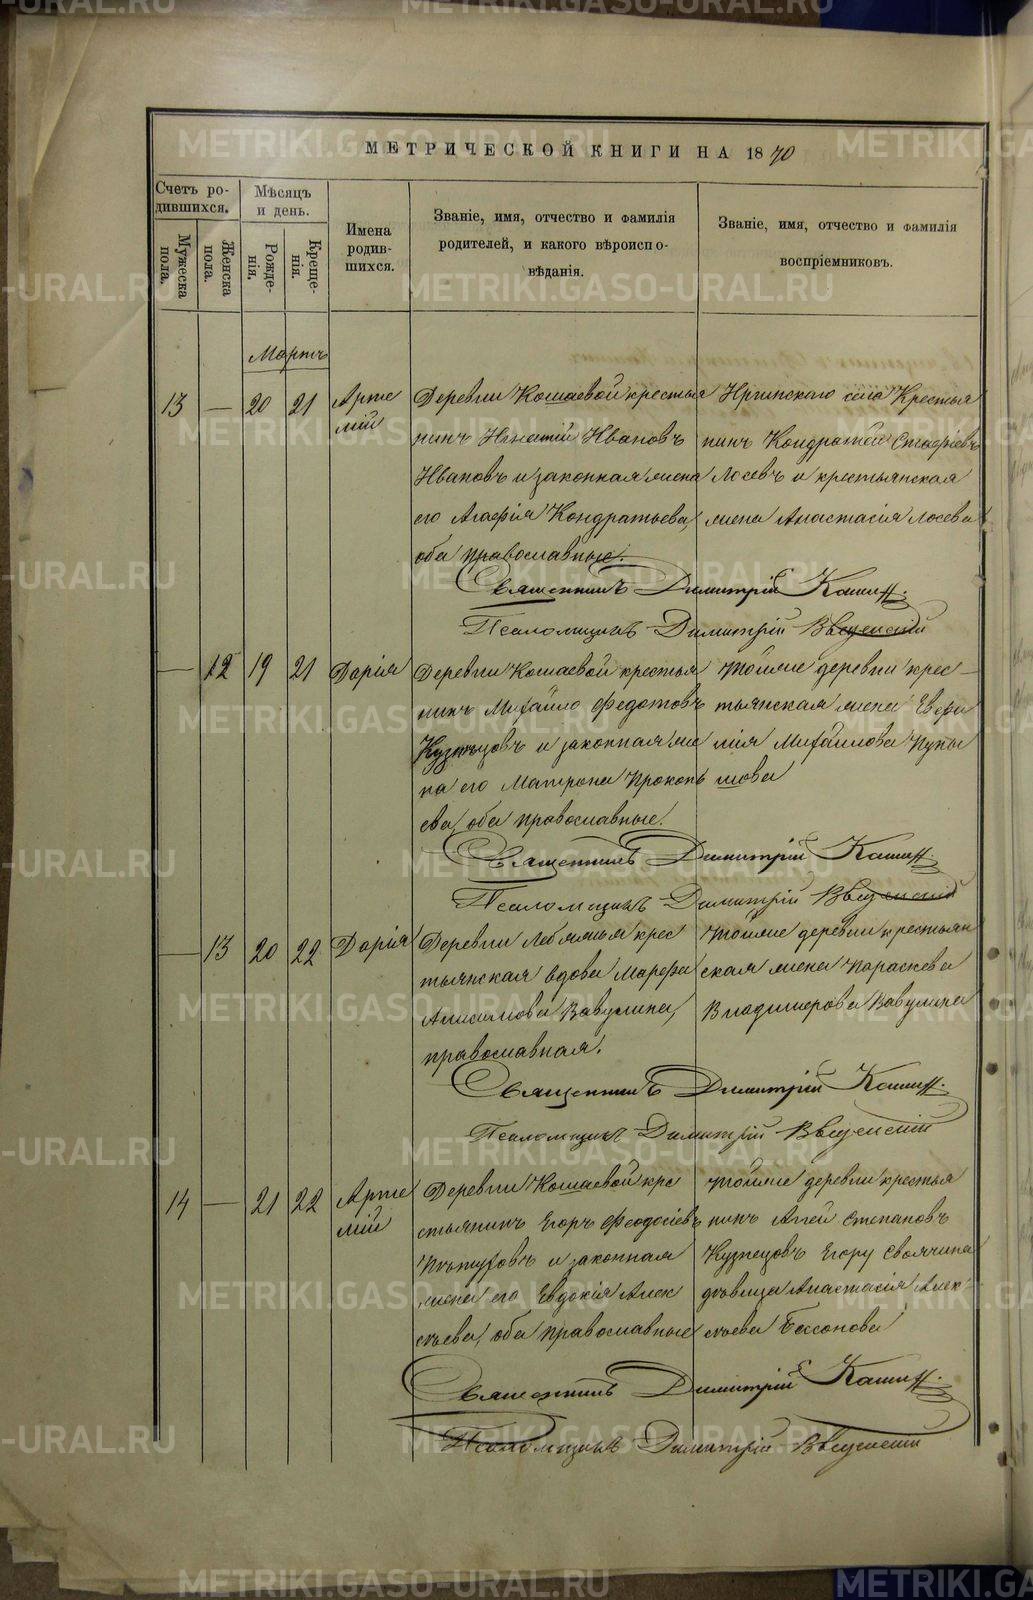 МЕТРИЧЕСКОЙ КНИГИ НА 1870
Счетъ ро-
дившихся.
Мужеска
пола.
Женска
пола.
Мѣсяцъ
и день.
Рожде-
нія.
Креще-
нія.
Имена
родив-
шихся.
Званіе, имя, отчество и фамилія
родителей, и какого вѣроиспо-
вѣданія.
Званіе, имя, отчество и фамилія
воспріемниковъ.
Мартъ
13 — 20 21
Арте
мій
Деревни Кошаевой крестья
нинъ Игнатій Ивановъ
Ивановъ и законная жена
его Агафія Кондратьева,
оба православные.
Иргинского села Крестья
нинъ Кондратій
Лосевъ и крестьянская
жена Анастасія Лосева
Священникъ Димитрій
Псаломщикъ Димитрій Введенскій
— 12 19 21
Дарія
Деревни Кошаевой крестья
нинъ Михайло Федотовъ
Кузнецовъ и законная же
на его Матрона Прокопь
ева, оба православные.
Тойже деревни крес-
тьянская жена
Михайлова
Священникъ Димитрій
Псаломщикъ Димитрій Введенскій
— 13 20 22
Дарія
Деревни крес
тьянская вдова Марфа
Вавулина,
православная.
Тойже деревни крестьян
ская жена Параскева
Владимерова Вавулина
Священникъ Димитрій
Псаломщикъ Димитрій Введенскій
14 — 21 22
Арте
мій
Деревни Кошаевой кре
стьянинъ Егоръ Феодосіевъ
и законная
жена его Евдокія Алек
сѣева, оба православные
Тойже деревни крестья
нинъ Степановъ
Кузнецовъ Егору Своячина
дѣвица Анастасія Алек-
сѣева Бессонова
Священникъ Димитрій
Псаломщикъ Димитрій Введенскій
METRIKI.GASO-URAL.RU